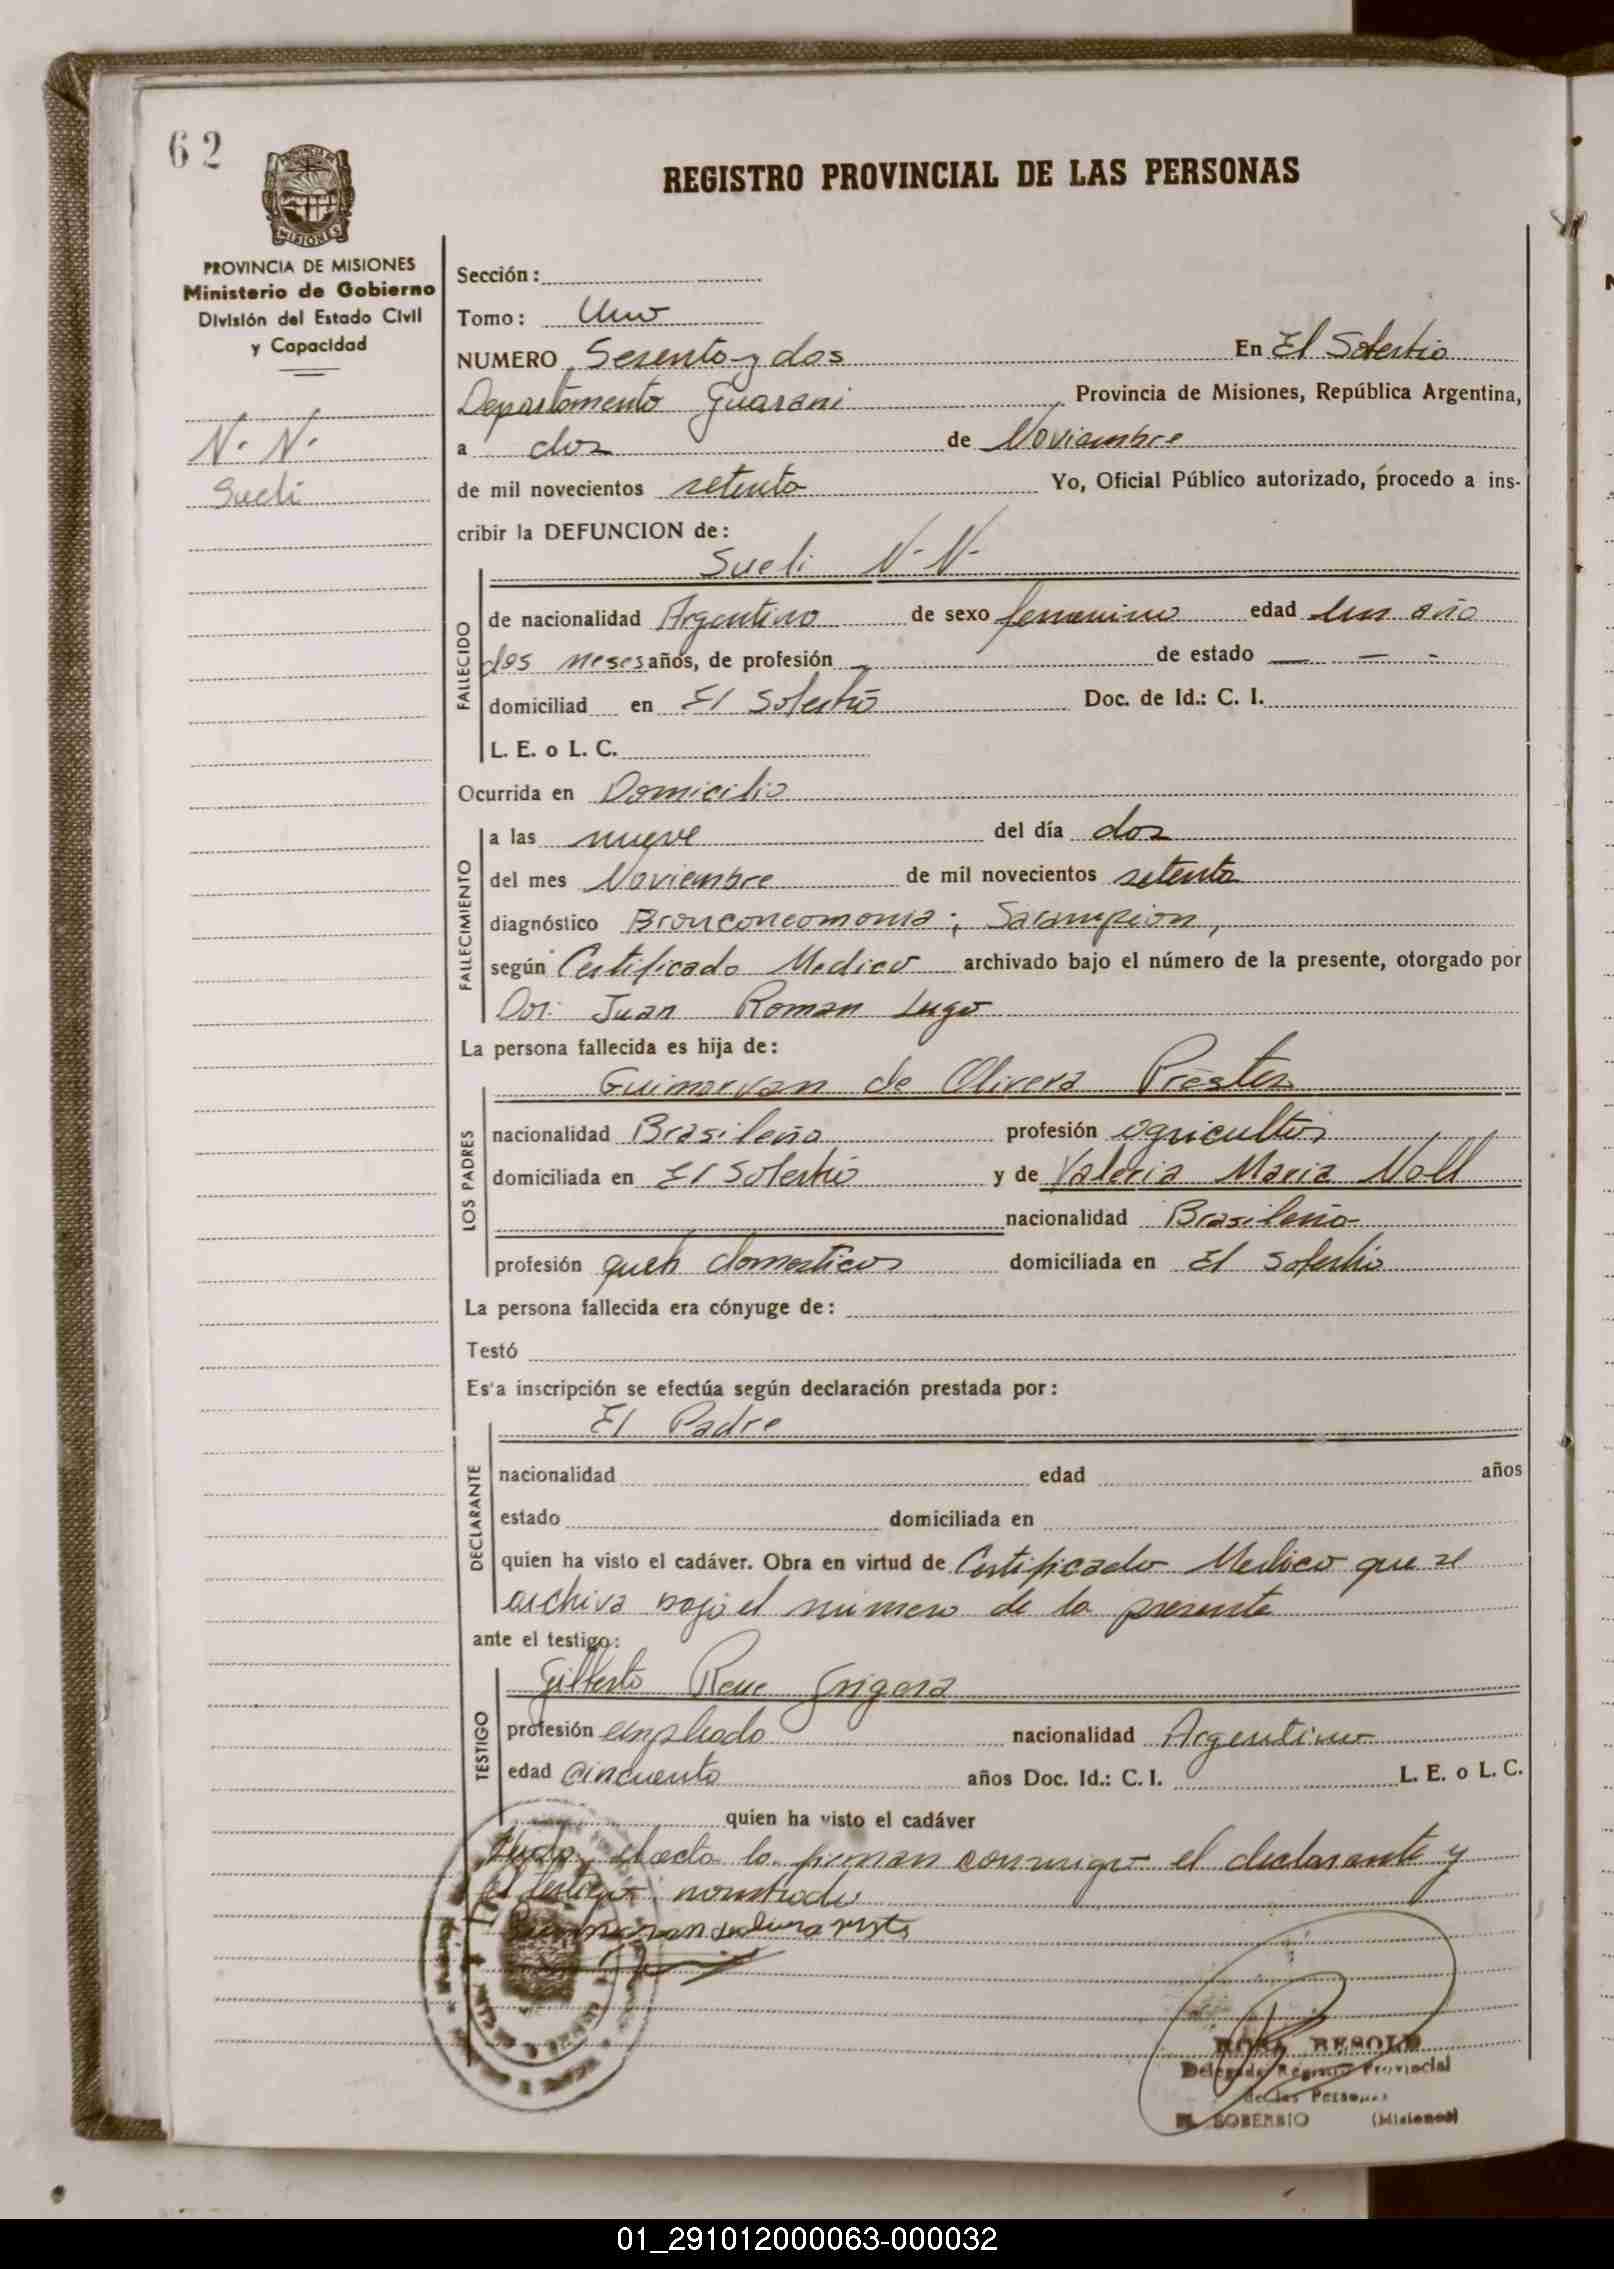 62
REGISTRO PROVINCIAL DE LAS PERSONAS
PROVINCIA DE MISIONES
Ministerio de Gobierno
División del Estado Civil
y Capacidad
N. N.
Sueli
Sección:
Tomo: Uno
NUMERO Sesenta y dos En El Soberbio
Departamento Guarani Provincia de Misiones, República Argentina,
a dos de Noviembre
de mil novecientos setenta Yo, Oficial Público autorizado, procedo a ins-
cribir la DEFUNCION de:
Sueli N. N.
FALLECIDO
de nacionalidad Argentino de sexo femenino edad un año
dos meses años, de profesión — de estado — — -
domiciliad en El Soberbio Doc. de Id.: C. I.
L. E. o L. C.
Ocurrida en Domicilio
FALLECIMIENTO
a las nueve del día dos
del mes Noviembre de mil novecientos setenta
diagnóstico Bronconeomonia; Sarampion,
según Certificado Medico archivado bajo el número de la presente, otorgado por
Dor: Juan Roman Lugo
La persona fallecida es hija de:
LOS PADRES
de Olivera Prestes
nacionalidad Brasileña profesión agricultor
domiciliada en El Soberbio y de Valeria Maria Noll
nacionalidad Brasileña
profesión queh domesticos domiciliada en El Soberbio
La persona fallecida era cónyuge de:
Testó
Es'a inscripción se efectúa según declaración prestada por:
El Padre
DECLARANTE
nacionalidad edad años
estado domiciliada en
quien ha visto el cadáver. Obra en virtud de Certificado Medico que se
archiva bajo el numero de la presente
ante el testigo:
TESTIGO
Gilberto Rene
profesión empleado nacionalidad Argentino
edad Cincuenta años Doc. Id.: C. I. L. E. o L. C.
quien ha visto el cadáver
el acta la firman conmigo el declarante y
el testigo nombrado
Delegada Registro Provincial
de las Personas
EL SOBERBIO (Misiones)
01_291012000063-000032